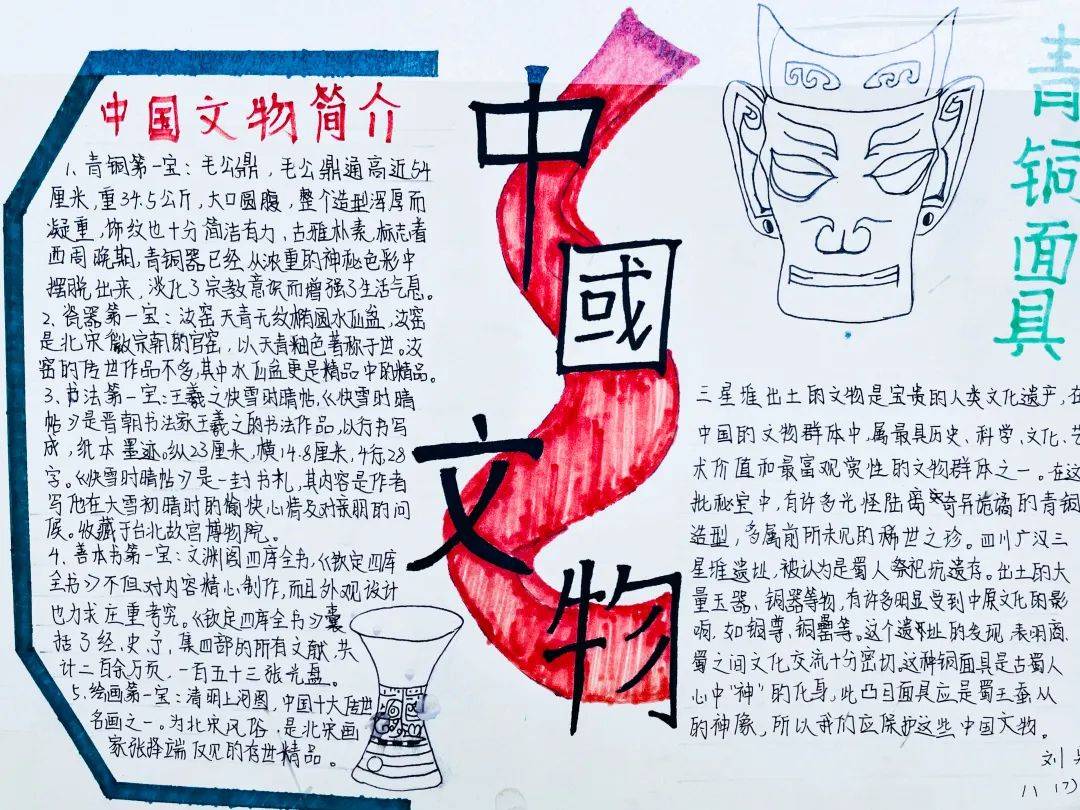 中国文物简介
1、青铜第一宝：毛公鼎，毛公鼎通高近54
厘米，重34.5公斤，大口圆腹，整个造型浑厚而
凝重，饰纹也十分简洁有力、古雅朴素，标志着
西周晚期，青铜器已经从浓重的神秘色彩中
摆脱出来，淡化了宗教意识而增强了生活气息。
2、瓷器第一宝：汝窑天青无纹椭圆水仙盆，汝窑
是北宋徽宗朝的官窑，以天青釉色著称于世。汝
窑的传世作品不多，其中水仙盆更是精品中的精品。
3、书法第一宝：王羲之快雪时晴帖，《快雪时晴
帖》是晋朝书法家王羲之的书法作品，以行书写
成，纸本墨迹。纵23厘米，横14.8厘米，4行28
字。《快雪时晴帖》是一封书札，其内容是作者
写他在大雪初晴时的愉快心情及对亲朋的问
候。收藏于台北故宫博物院。
4、善本书第一宝：文渊阁四库全书，《钦定四库
全书》不但对内容精心制作，而且外观设计
也力求庄重考究。《钦定四库全书》囊
括了经、史、子、集四部的所有文献，共
计二百余万页，一百五十三张光盘。
5、绘画第一宝：清明上河图，中国十大传世
名画之一。为北宋风俗，是北宋画
家张择端仅见的存世精品。
中
國
文
物
青铜面具
三星堆出土的文物是宝贵的人类文化遗产，在
中国的文物群体中，属最具历史、科学、文化、艺
术价值和最富观赏性的文物群体之一。在这
批秘宝中，有许多光怪陆离奇异诡谲的青铜
造型，多属前所未见的稀世之珍。四川广汉三
星堆遗址，被认为是蜀人祭祀坑遗存。出土的大
量玉器、铜器等物，有许多明显受到中原文化的影
响，如铜尊，铜罍等。这个遗址的发现，表明商、
蜀之间文化交流十分密切。这种铜面具是古蜀人
心中“神”的化身，此凸目面具应是蜀王蚕从
的神像，所以我们应保护这些中国文物。
刘